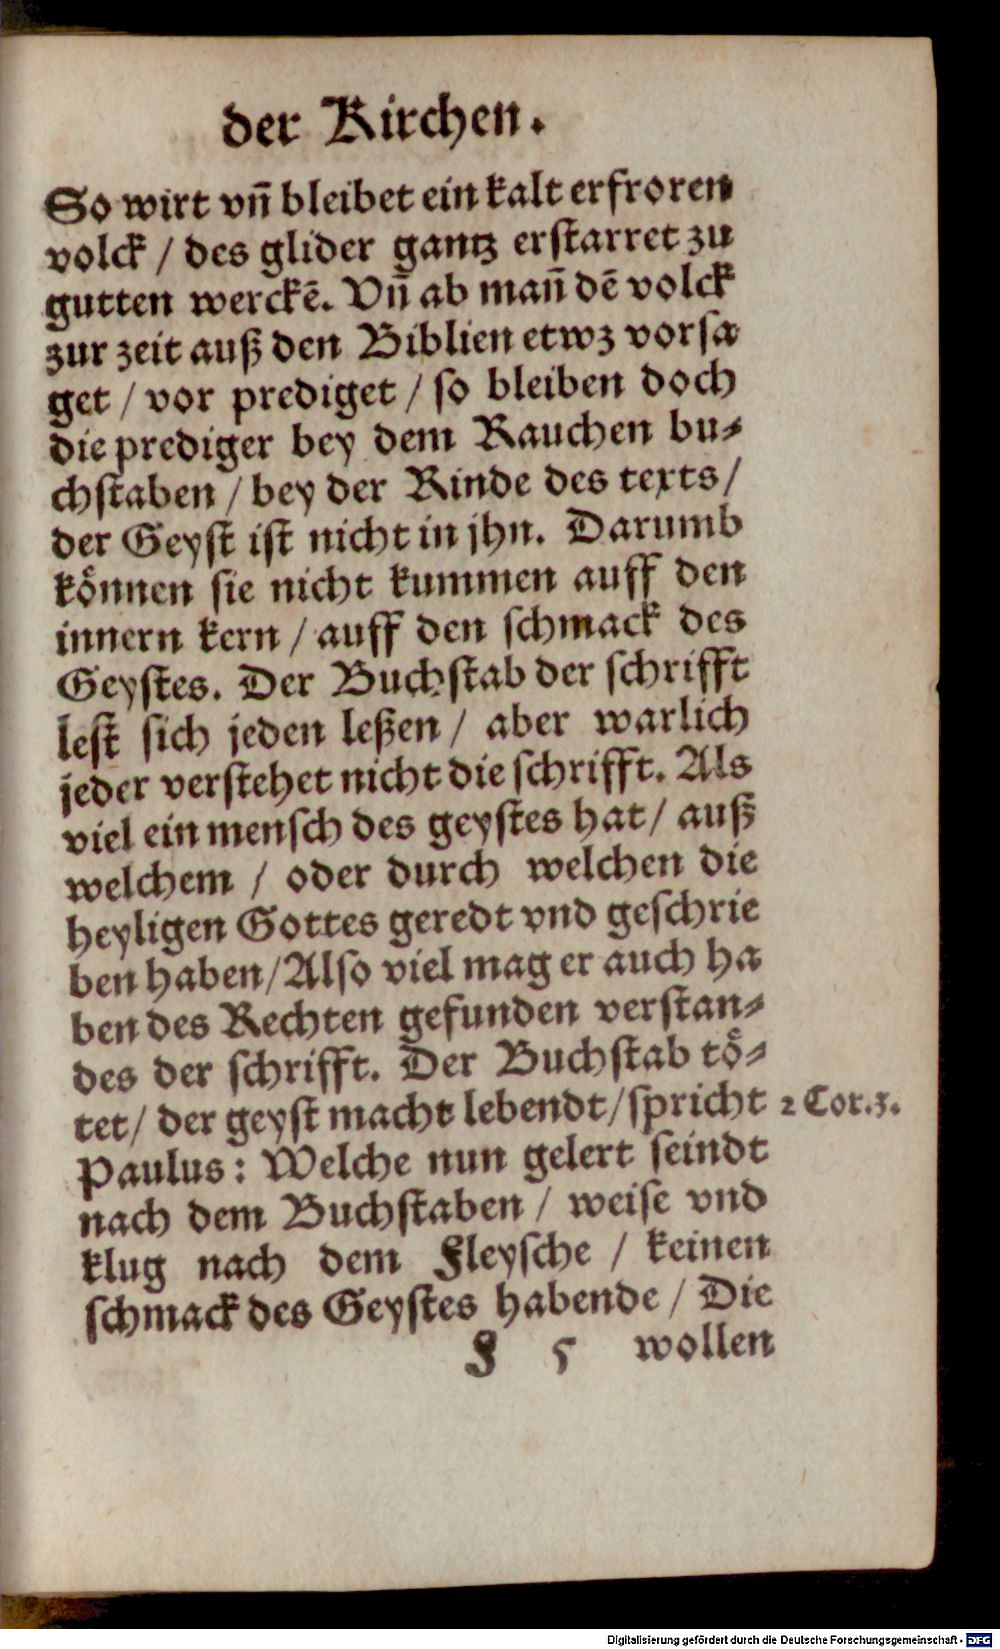 der Kirchen.
So wirt vñ bleibet ein kalt erfroren
volck / des glider gantz erstarret zu
gutten werckẽ. Vñ ab mañ dẽ volck
zur zeit auß den Biblien etwz vorsa
get / vor prediget / so bleiben doch
die prediger bey dem Rauchen bu⸗
chstaben / bey der Rinde des texts /
der Geyst ist nicht in jhn. Darumb
koͤnnen sie nicht kummen auff den
innern kern / auff den schmack des
Geystes. Der Buchstab der schrifft
lest sich jeden leßen / aber warlich
jeder verstehet nicht die schrifft. Als
viel ein mensch des geystes hat / auß
welchem / oder durch welchen die
heyligen Gottes geredt vnd geschrie
ben haben / Also viel mag er auch ha
ben des Rechten gefunden verstan⸗
des der schrifft. Der Buchstab toͤ⸗
tet / der geyst macht lebendt / spricht 2 Cor.3.
Paulus: Welche nun gelert seindt
nach dem Buchstaben / weise vnd
klug nach dem Fleysche / keinen
schmack des Geystes habende / Die
F 5 wollen
Digitalisierung gefördert durch die Deutsche Forschungsgemeinschaft - DFG